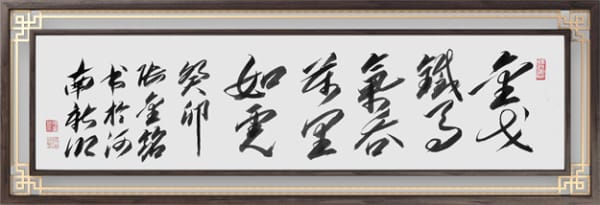 金戈
鐵馬
氣吞
萬里
如虎
癸卯
張金銘
书於河
南新